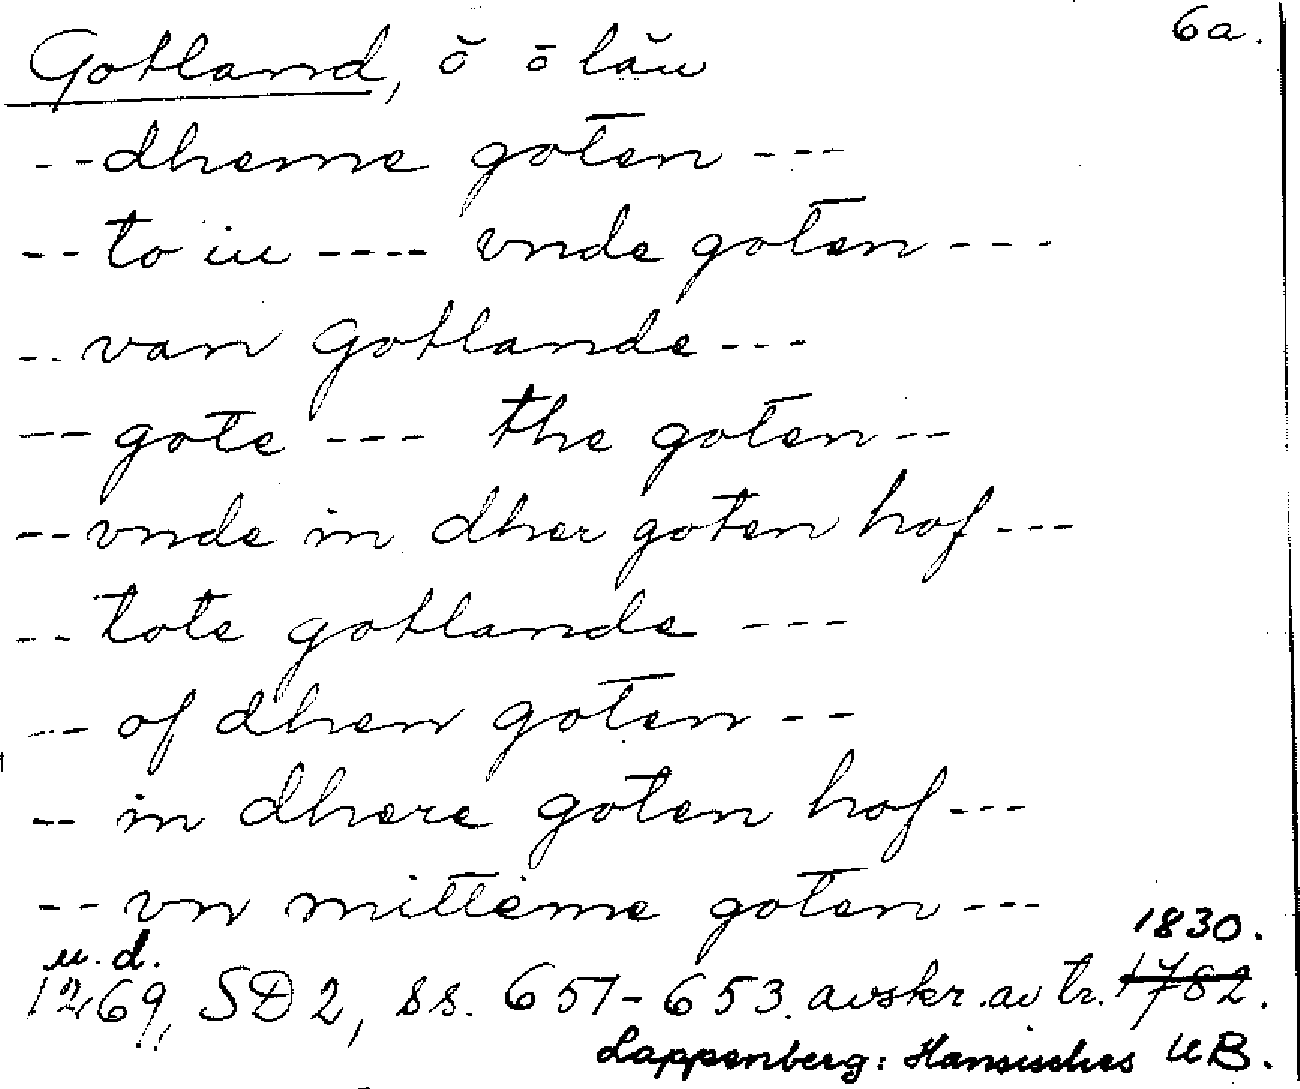 6a.
Gotland, ö̆ ō lău
--dheme goten---
--to iu ---- vnde goten---
--van Gotlande---
--gote --- the goten--
--vnde in dher goten hof---
--tote gotlande ---
--of dhen goten---
--in dhere goten hof---
--vn mitteme goten---
u.d. 1830.
1269, SD 2, ss. 651-653. avskr. av tr. 1782.
Lappenberg: Hansisches UB.